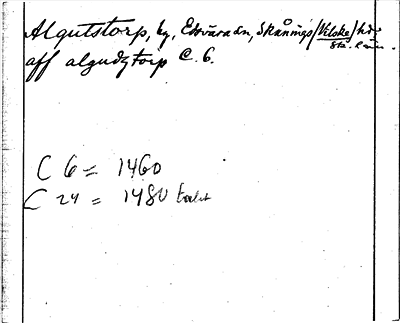 Algutstorp, by, Edsvära sn, Skånings/(Vilske) hd.
Ska. län.
aff algudztorp C. 6.
C 6 = 1460
C 24 = 1480 talet